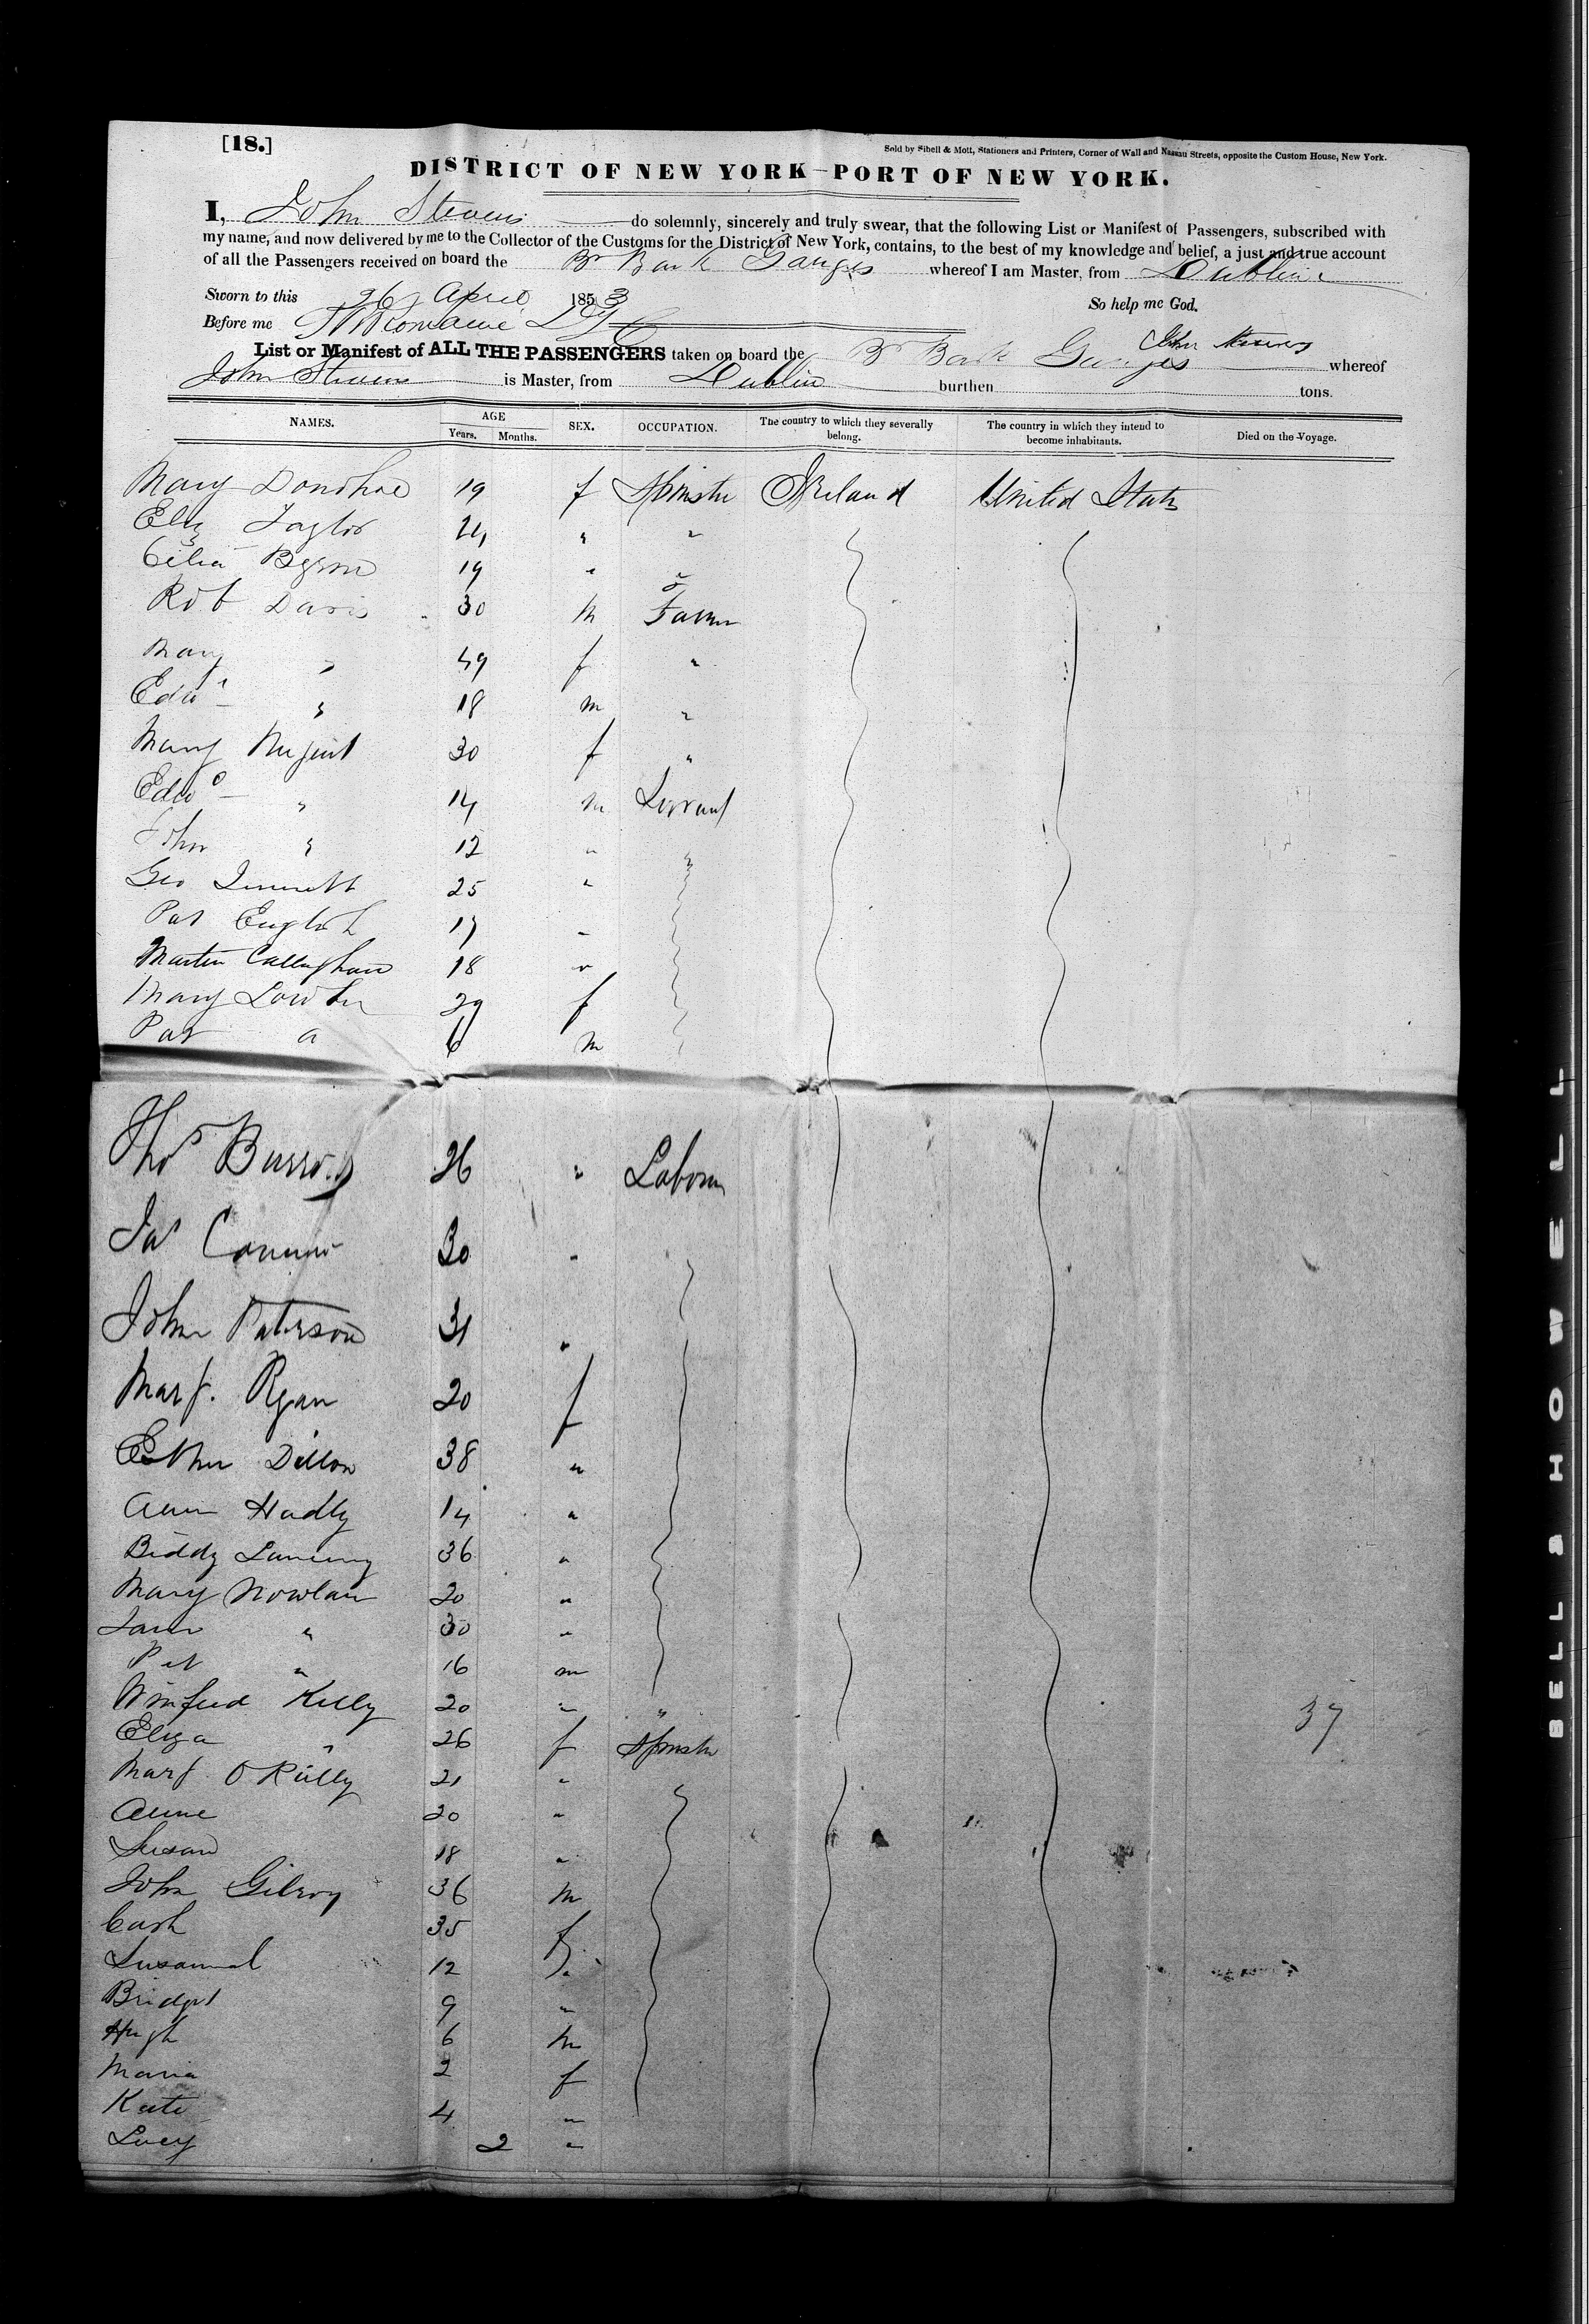 [18.]
Sold by Sibell & Mott, Stationers and Printers, Corner of Wall and Nassau Streets, opposite the Custom House, New York.
DISTRICT OF NEW YORK—PORT OF NEW YORK.
I, John Stevens do solemnly, sincerely and truly swear, that the following List or Manifest of Passengers, subscribed with
my name, and now delivered by me to the Collector of the Customs for the District of New York, contains, to the best of my knowledge and belief, a just and true account
of all the Passengers received on board the Br Bark Ganges whereof I am Master, from Dublin
Sworn to this 26 April 1853 So help me God.
Before me
John Stevens
List or Manifest of ALL THE PASSENGERS taken on board the Br Bark Ganges whereof
John Stevens is Master, from Dublin burthen tons.
NAMES. AGE Years. Months. SEX. OCCUPATION. The country to which they severally belong. The country in which they intend to become inhabitants. Died on the Voyage.
Mary Donohoe 19 f Spinster Ireland United States
Eliz Taylor 24 " "
Celia Byrne 19 " "
Rob Davis 30 m Farmer
Mary " 49 f "
Edwd " 18 m "
Mary Nugent 30 f "
Edwd " 14 m Servant
John " 12 " "
Geo 25 "
Pat English 17 "
Martin Callaghan 18 "
Mary Lowther 29 f
Pat " 6 m
Thos Burrows 26 " Laborer
Jas Connor 30 "
John Paterson 31 "
Marg. Ryan 20 f
Esther Dillon 38 "
Ann Hadly 14 "
Biddy 36 "
Mary Nowlan 20 "
Jane " 30 "
Pat " 16 m
Winifred Kelly 20 " "
37
Eliza " 26 f Spinster
Marg O Reilly 21 "
Anne 20 "
Susan 18 "
John Gilroy 36 m
Cath 35 f
Susannah 12 "
Bridget 9 "
Hugh 6 m
Maria 2 f
Kate 4 "
Lucy 2 "
BELL & HOWELL